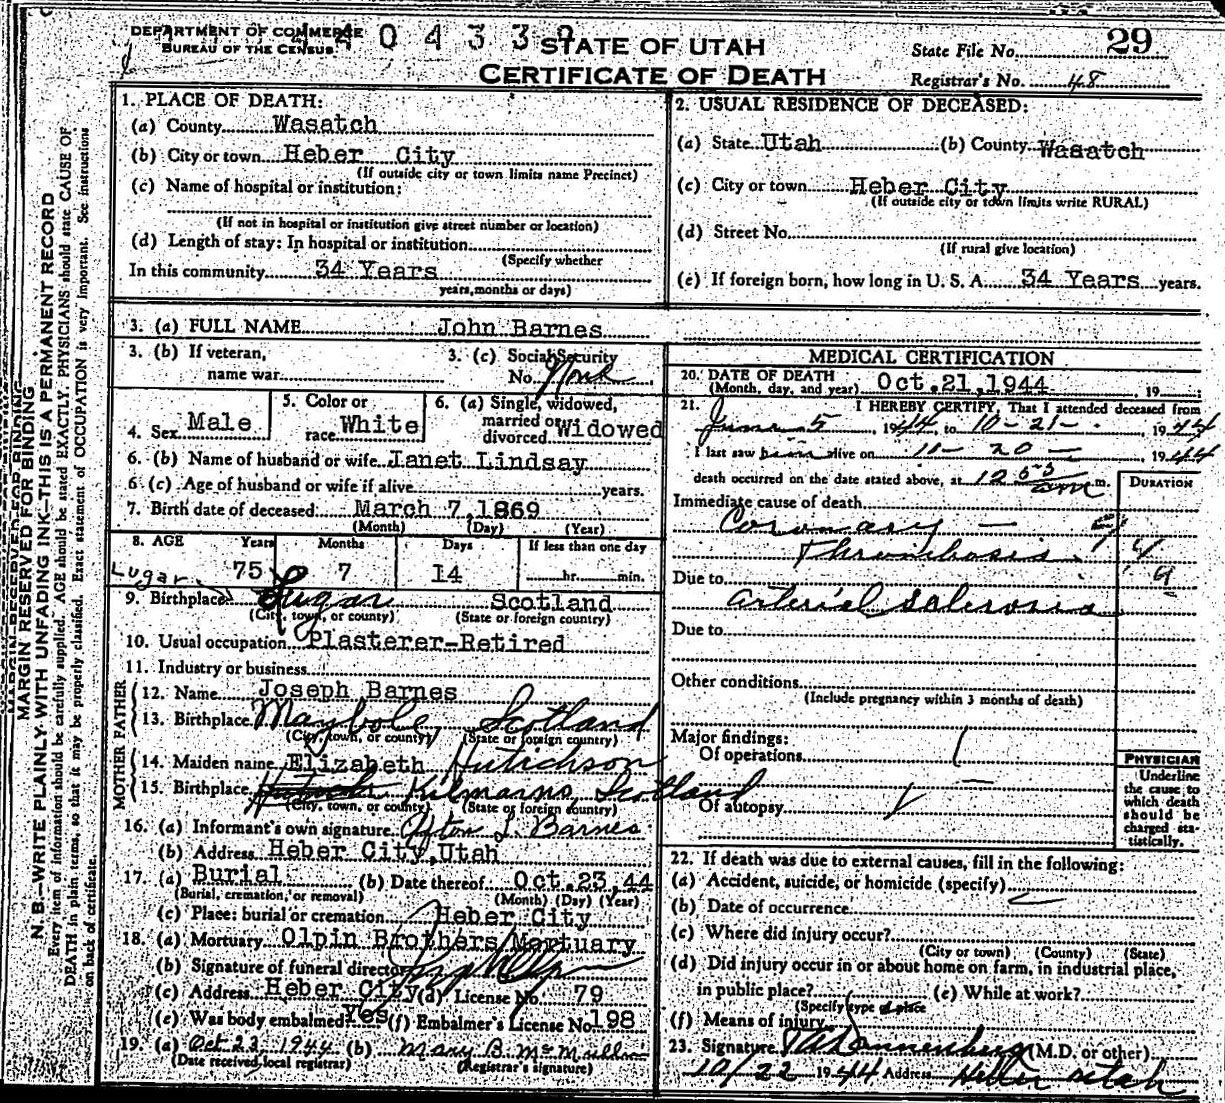 DEPARTMENT OF COMMERCE
BUREAU OF THE CENSUS
4 0 4 3 3 9
STATE OF UTAH
CERTIFICATE OF DEATH
State File No. 29
Registrar's No. 48
MARGIN RESERVED FOR BINDING
N. B.—WRITE PLAINLY WITH UNFADING INK—THIS IS A PERMANENT RECORD
Every item of information should be carefully supplied. AGE should be stated EXACTLY. PHYSICIANS should state CAUSE OF
DEATH in plain terms, so that it may be properly classified. Exact statement of OCCUPATION is very important. See instruction
on back of certificate.
1. PLACE OF DEATH:
(a) County Wasatch
(b) City or town Heber City
(If outside city or town limits name Precinct)
(c) Name of hospital or institution:
(If not in hospital or institution give street number or location)
(d) Length of stay: In hospital or institution
(Specify whether
In this community 34 Years
years, months or days)
2. USUAL RESIDENCE OF DECEASED:
(a) State Utah (b) County Wasatch
(c) City or town Heber City
(If outside city or town limits write RURAL)
(d) Street No.
(If rural give location)
(e) If foreign born, how long in U. S. A. 34 Years years.
3. (a) FULL NAME John Barnes
3. (b) If veteran,
name war
3. (c) Social Security
No. None
4. Sex Male
5. Color or
race White
6. (a) Single, widowed,
married or
divorced Widowed
6. (b) Name of husband or wife Janet Lindsay
6. (c) Age of husband or wife if alive years.
7. Birth date of deceased March 7,1869
(Month) (Day) (Year)
8. AGE Years Months Days If less than one day
75 7 14 hr. min.
Lugar
9. Birthplace Lugar Scotland
(City, town, or county) (State or foreign country)
10. Usual occupation Plasterer-Retired
11. Industry or business
FATHER
12. Name Joseph Barnes
13. Birthplace Maybole Scotland
(City, town, or county) (State or foreign country)
MOTHER
14. Maiden name Elizabeth Hutichson
15. Birthplace Kilmarns, Scotland
(City, town, or county) (State or foreign country)
16. (a) Informant's own signature Afton L. Barnes
(b) Address Heber City,Utah
17. (a) Burial (b) Date thereof Oct.23,44
(Burial, cremation, or removal) (Month) (Day) (Year)
(c) Place: burial or cremation Heber City
18. (a) Mortuary Olpin Brothers Mortuary
(b) Signature of funeral director
(c) Address Heber City (d) License No. 79
(e) Was body embalmed Yes (f) Embalmer's License No. 198
19. (a) Oct 23 1944 (b) Mary B. McMullin
(Date received local registrar) (Registrar's signature)
MEDICAL CERTIFICATION
20. DATE OF DEATH
(Month, day, and year) Oct.21,1944, 19
21. I HEREBY CERTIFY, That I attended deceased from
June 5, 1944 to 10-21-, 1944
I last saw him alive on 10-20-, 1944
death occurred on the date stated above, at 12 55 am m.
DURATION
Immediate cause of death
Coronary —
Thrombosis
Due to
Arterial Sclerosis
Due to
Other conditions
(Include pregnancy within 3 months of death)
Major findings:
Of operations
Of autopsy
PHYSICIAN
Underline
the cause to
which death
should be
charged sta-
tistically.
22. If death was due to external causes, fill in the following:
(a) Accident, suicide, or homicide (specify)
(b) Date of occurrence
(c) Where did injury occur?
(City or town) (County) (State)
(d) Did injury occur in or about home on farm, in industrial place,
in public place? (e) While at work?
(Specify type of place
(f) Means of injury
23. Signature Dannenberg (M.D. or other)
10/22 1944 Address Heber Utah